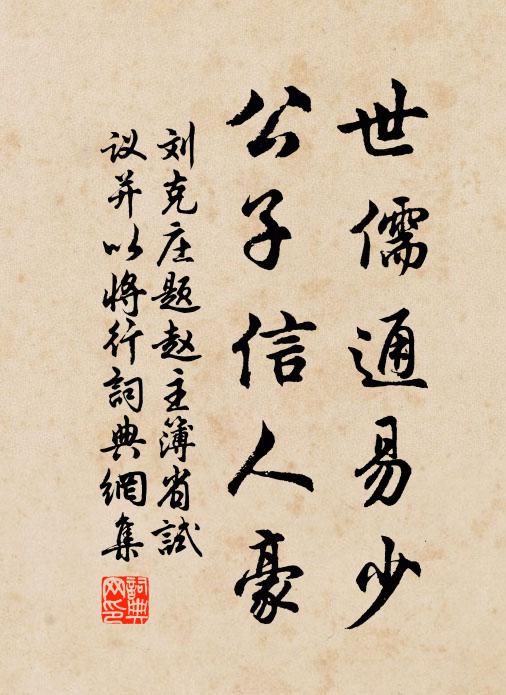 世儒通易少
公子信人豪
刘克庄题赵主簿省試
议并以将行詞典網集
詞典网印